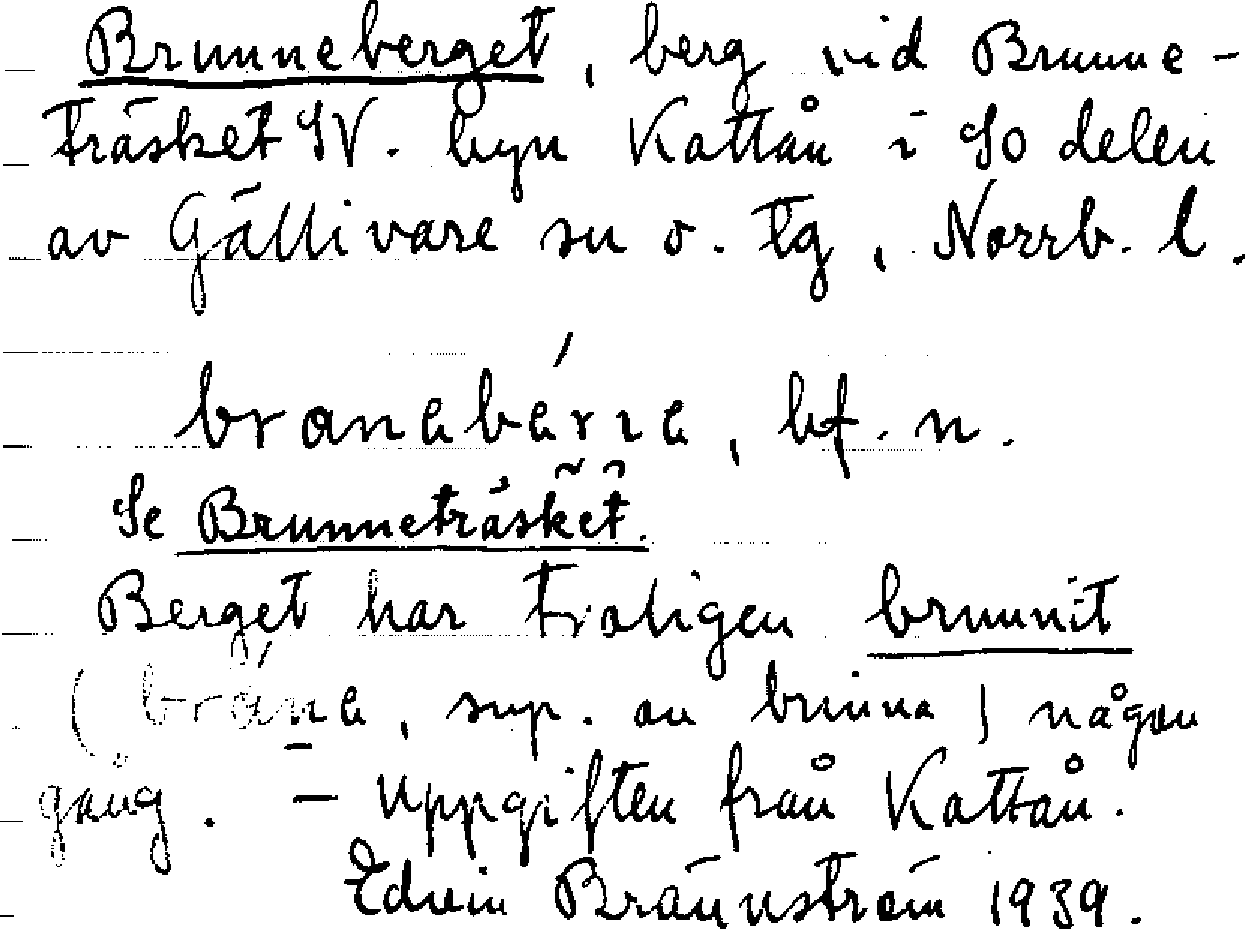 Brunneberget, berg vid Brunne-
träsket SV. byn Kattån i So delen
av Gällivare sn o. tg, Norrb. l.
branabárra, bf. n.
Se Brunneträsket.
Berget har troligen brunnit
(brána, sup. av brinna) någon
gång. - Uppgiften från Kattån.
Edvin Brännström 1939.